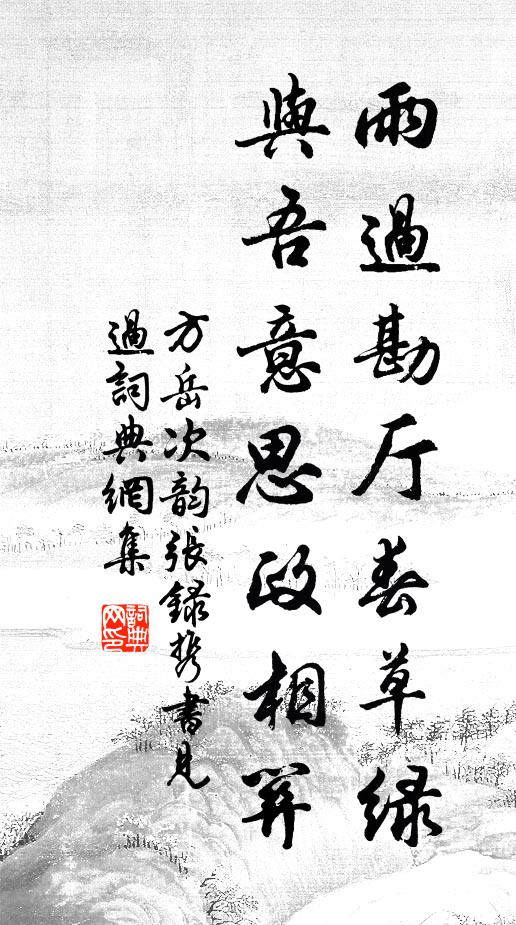 雨過勘厅春草緑
與吾意思政相关
方岳次韵張録携書見
過詞典網集
詞典网印